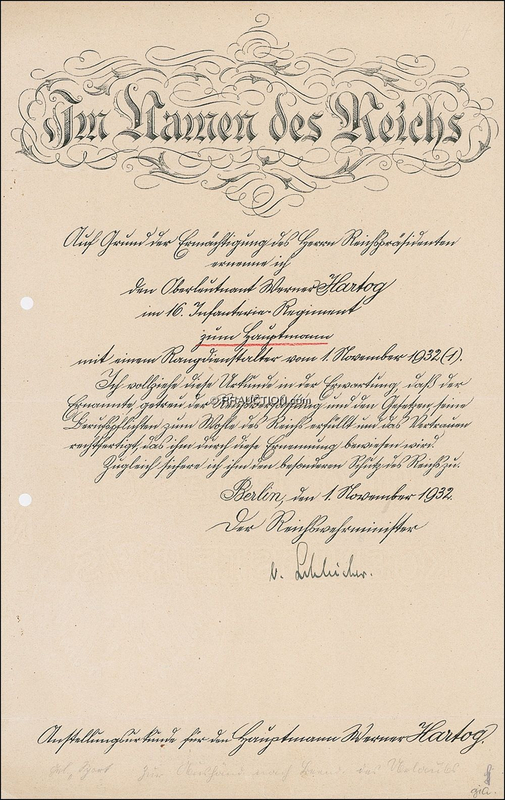 Im Namen des Reichs
Auf Grund der Ermächtigung des Herrn Reichspräsidenten
ernenne ich
den Oberleutnant Werner Hartog
im 16. Infanterie-Regiment
zum Hauptmann
mit einem Rangdienstalter vom 1. November 1932 (1).
Ich vollziehe diese Urkunde in der Erwartung, daß der
Ernannte getreu der Reichsverfassung und den Gesetzen seine
Berufspflichten zum Wohle des Reichs erfüllt und das Vertrauen
rechtfertigt, das ihm durch diese Ernennung bewiesen wird.
Zugleich sichere ich ihm den besonderen Schutz des Reichs zu.
© HFAUCTION.com
Berlin, den 1. November 1932.
Der Reichswehrminister
v. Schleicher.
Anstellungsurkunde für den Hauptmann Werner Hartog.